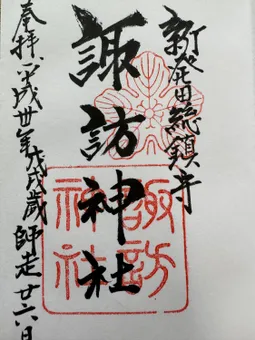 新発田総鎮守
諏訪神社
奉拝 平成卅年戊戌歳 師走廿六日
諏訪
神社